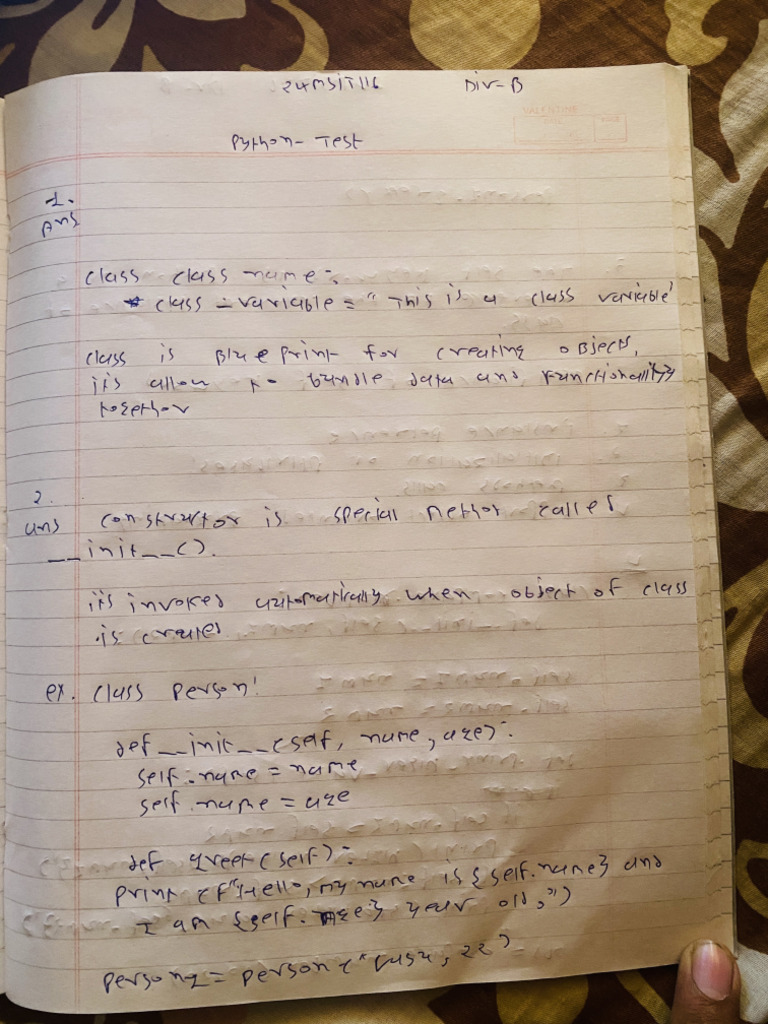 24MSIT116 Div-B
Python- Test
1.
Ans
class class name:
class - variable = "This is a class variable"
class is Blue print for creating objects,
its allow to bundle data and functionality
together
2.
ans constructor is special method called
__init__().
its invoked automatically when object of class
is created
ex. class person:
def __init__(self, name, age):
self.name = name
self.name = age
def greet(self):
print(f"Hello, my name is {self.name} and
I am {self.age} year old,")
person1 = person(" , 22)